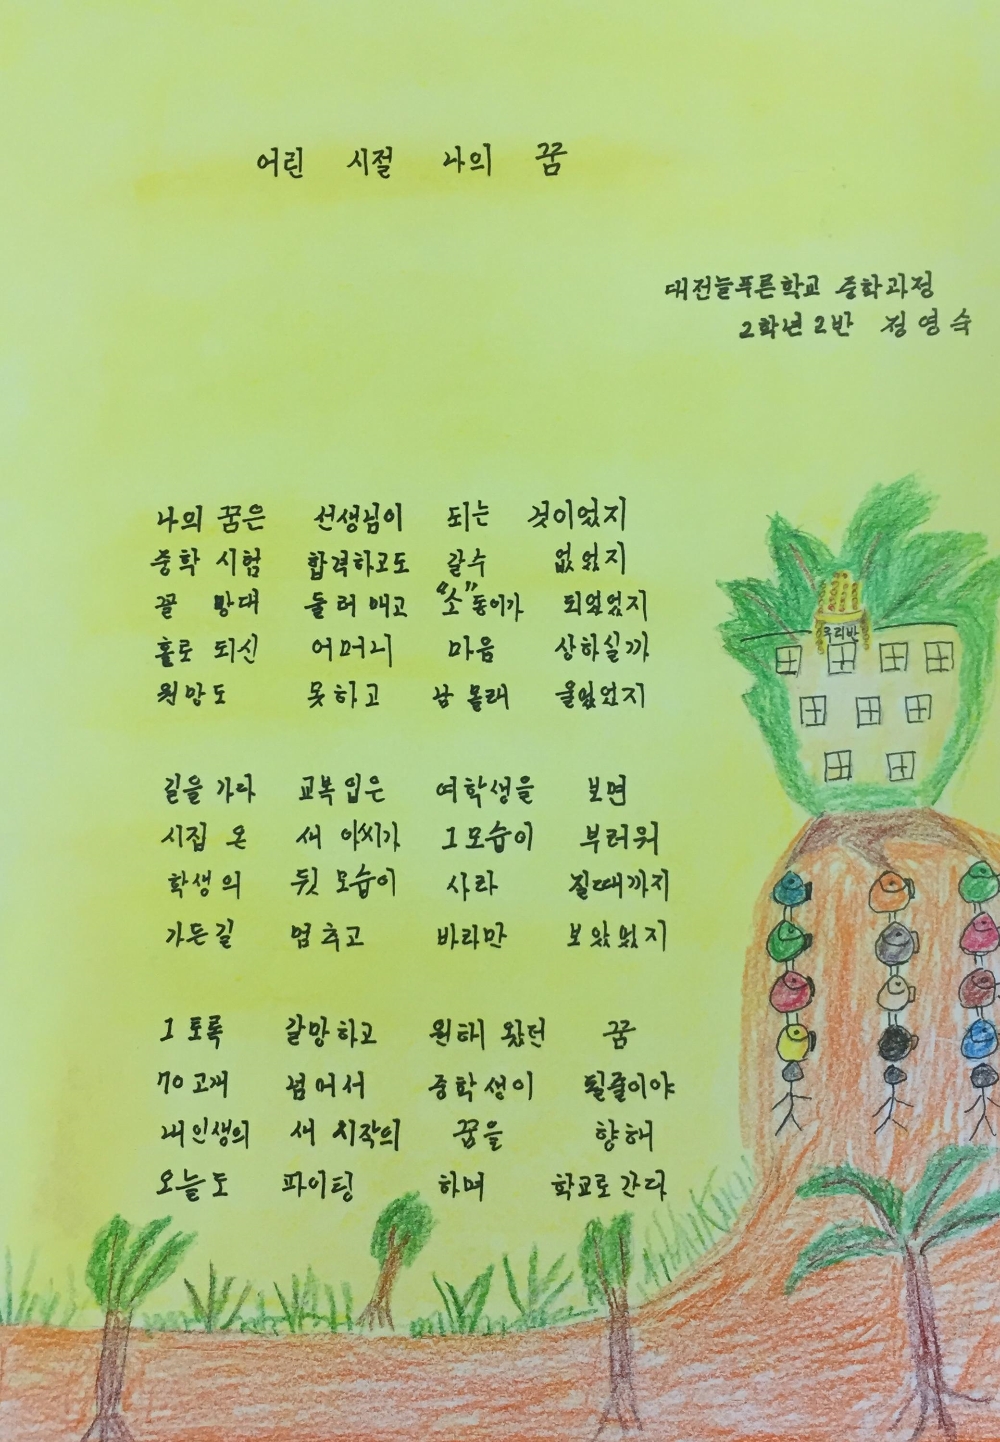 어린 시절 나의 꿈
대전늘푸른학교 중학과정
2학년 2반 정영숙
나의 꿈은 선생님이 되는 것이었지
중학 시험 합격하고도 갈수 없었지
꼴 망태 둘러 애고 “소” 동이가 되었었지
홀로 되신 어머니 마음 상하실까
원망도 못하고 남 몰래 울었었지
길을 가다 교복 입은 여학생을 보면
시집 온 새 아씨가 그 모습이 부러워
학생의 뒷 모습이 사라 질때까지
가든길 멈추고 바라만 보았었지
그 토록 갈망하고 원해 왔던 꿈
70 고개 넘어서 중학생이 될줄이야
내인생의 새 시작의 꿈을 향해
오늘도 파이팅 하며 학교로 간다